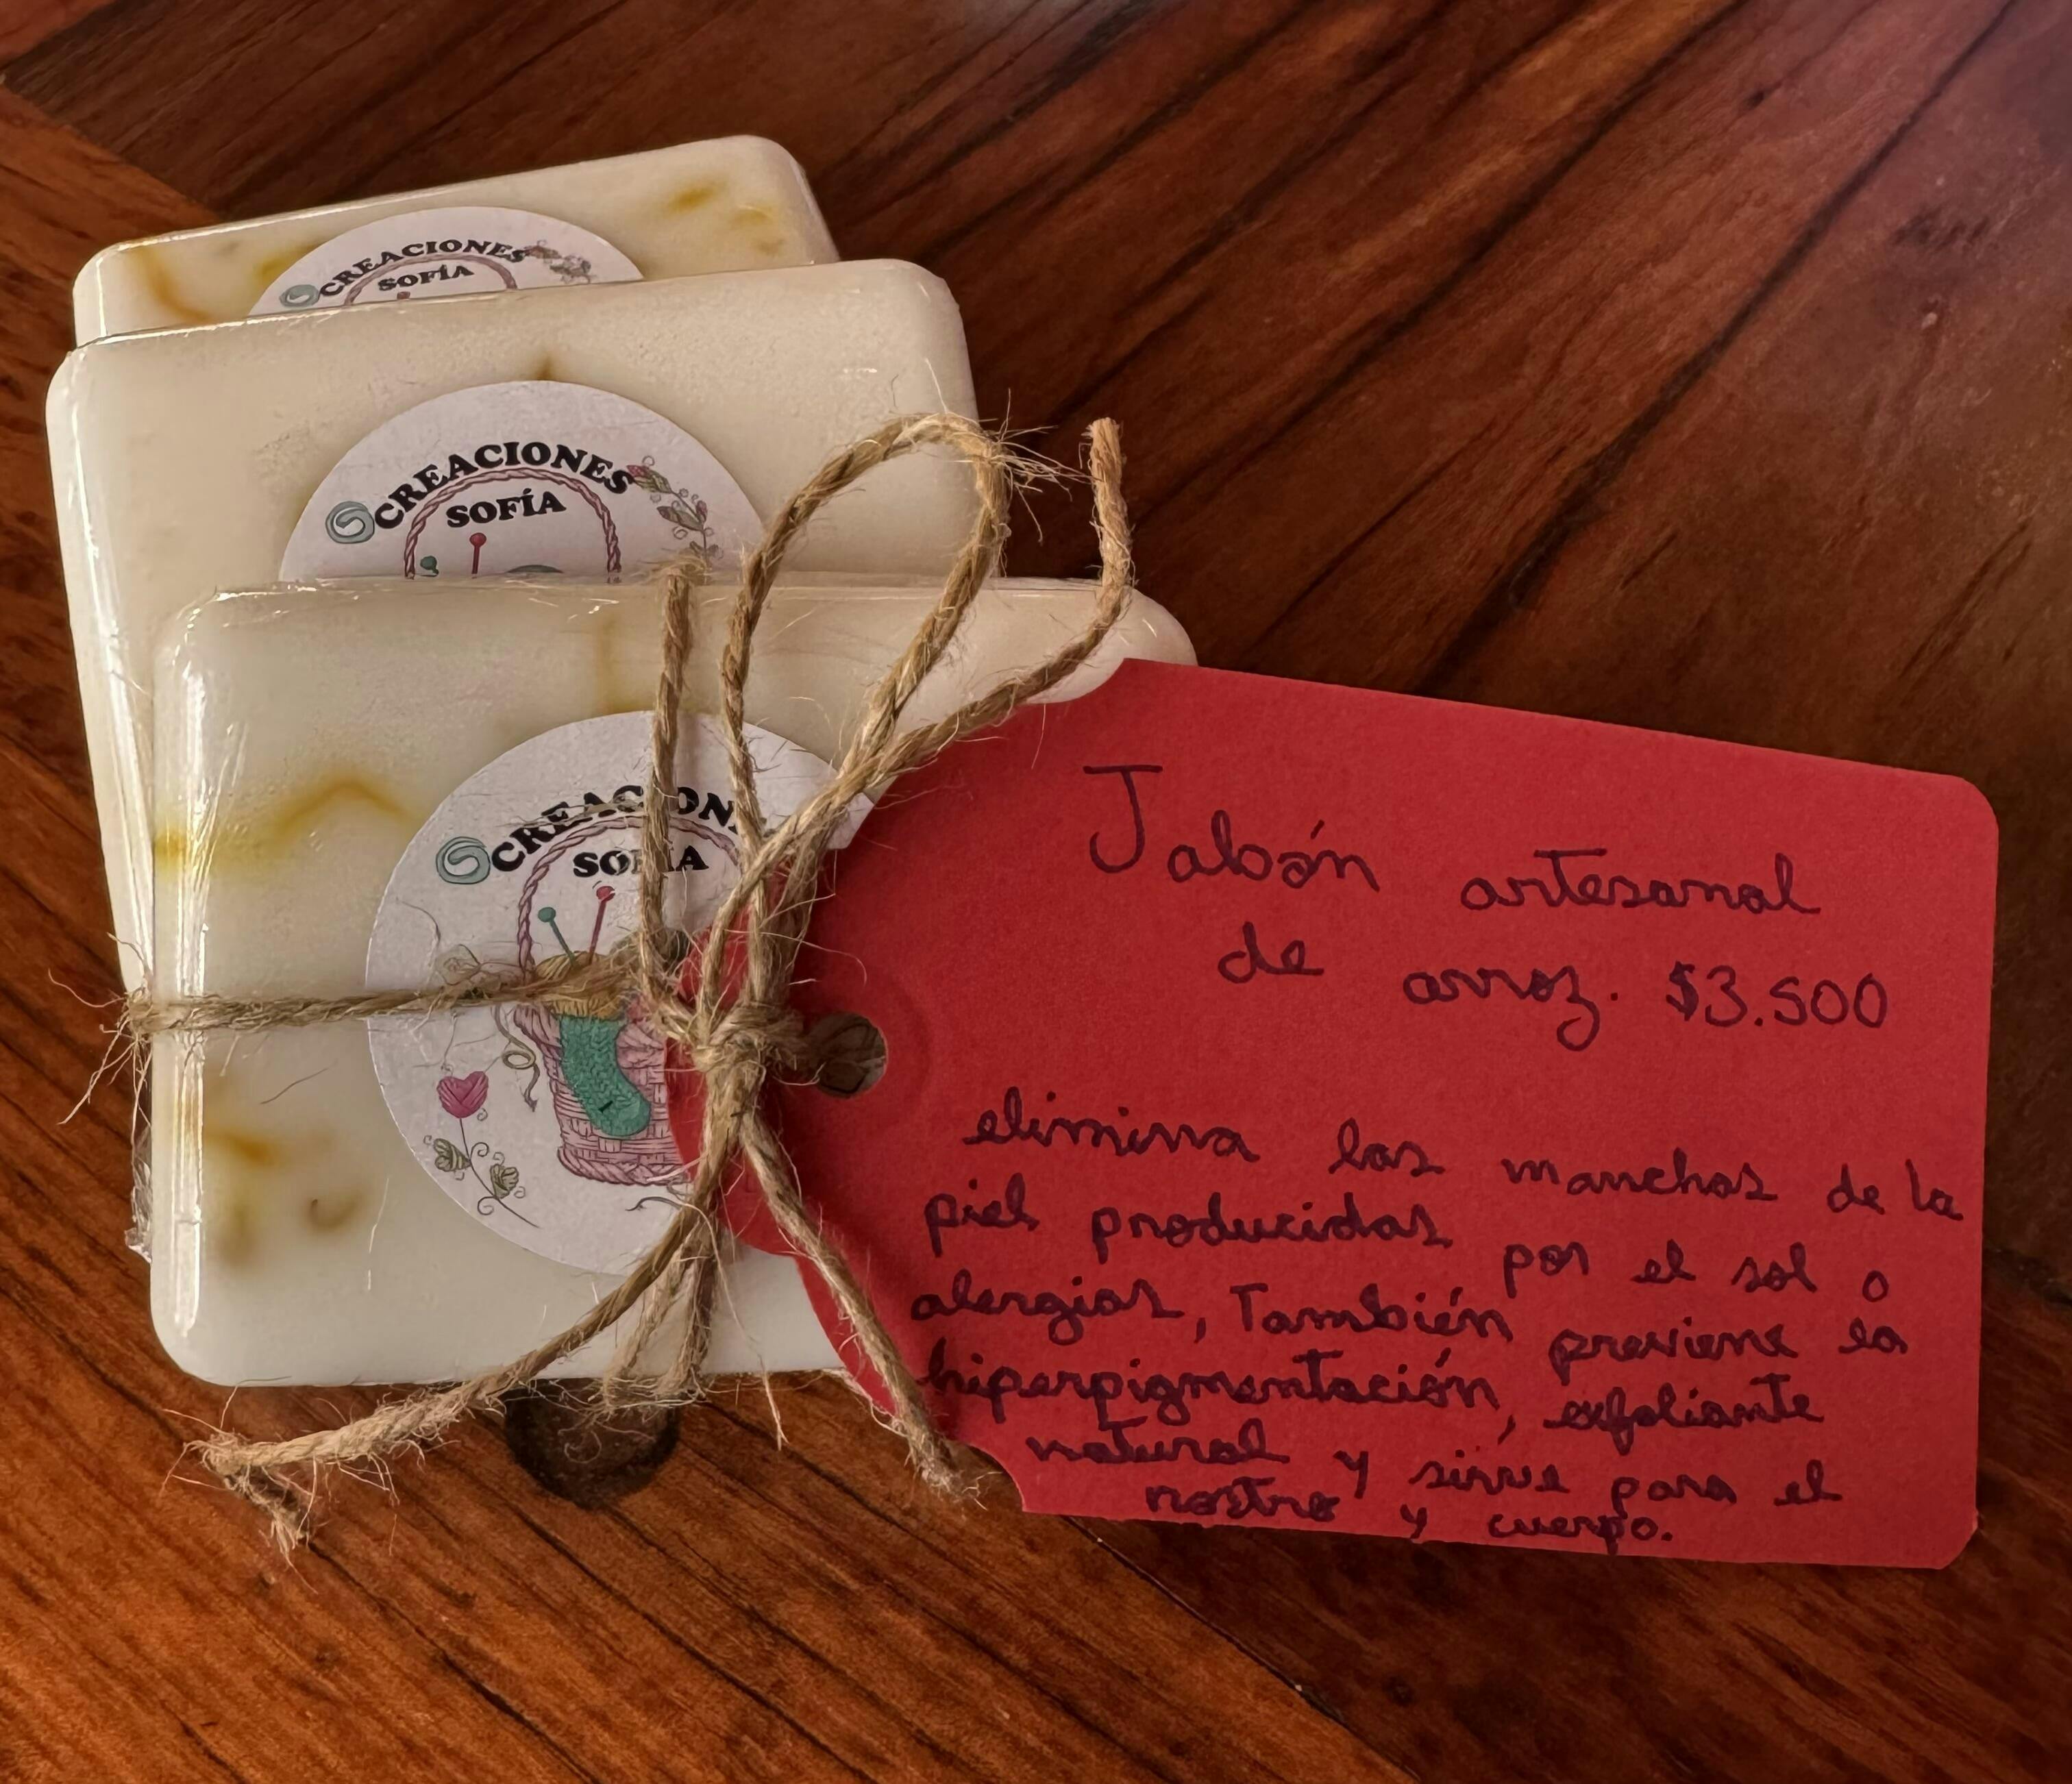 CREACIONES
SOFÍA
CREACIONES
SOFÍA
CREACION
SOFÍA
Jabón artesanal
de arroz. $3.500
elimina las manchas de la
piel producidas por el sol o
alergias, También previene la
hiperpigmentación, exfoliante
natural y sirve para el
rostro y cuerpo.